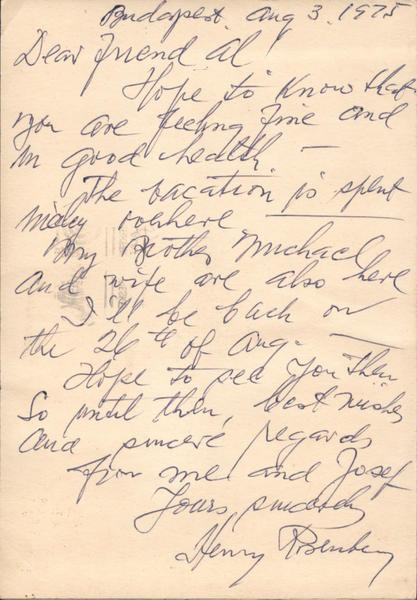 Budapest, Aug 3. 1975
Dear friend Al!
Hope to know that
you are feeling fine and
in good health —
The vacation is spent
nicely here —
My Brother Michael
and wife are also here
I'll be back on
the 26th of Aug. —
Hope to see you then
So until then, best wishes
and sincere regards
from me and Josef
Yours sincerely
Henry Rosenberg